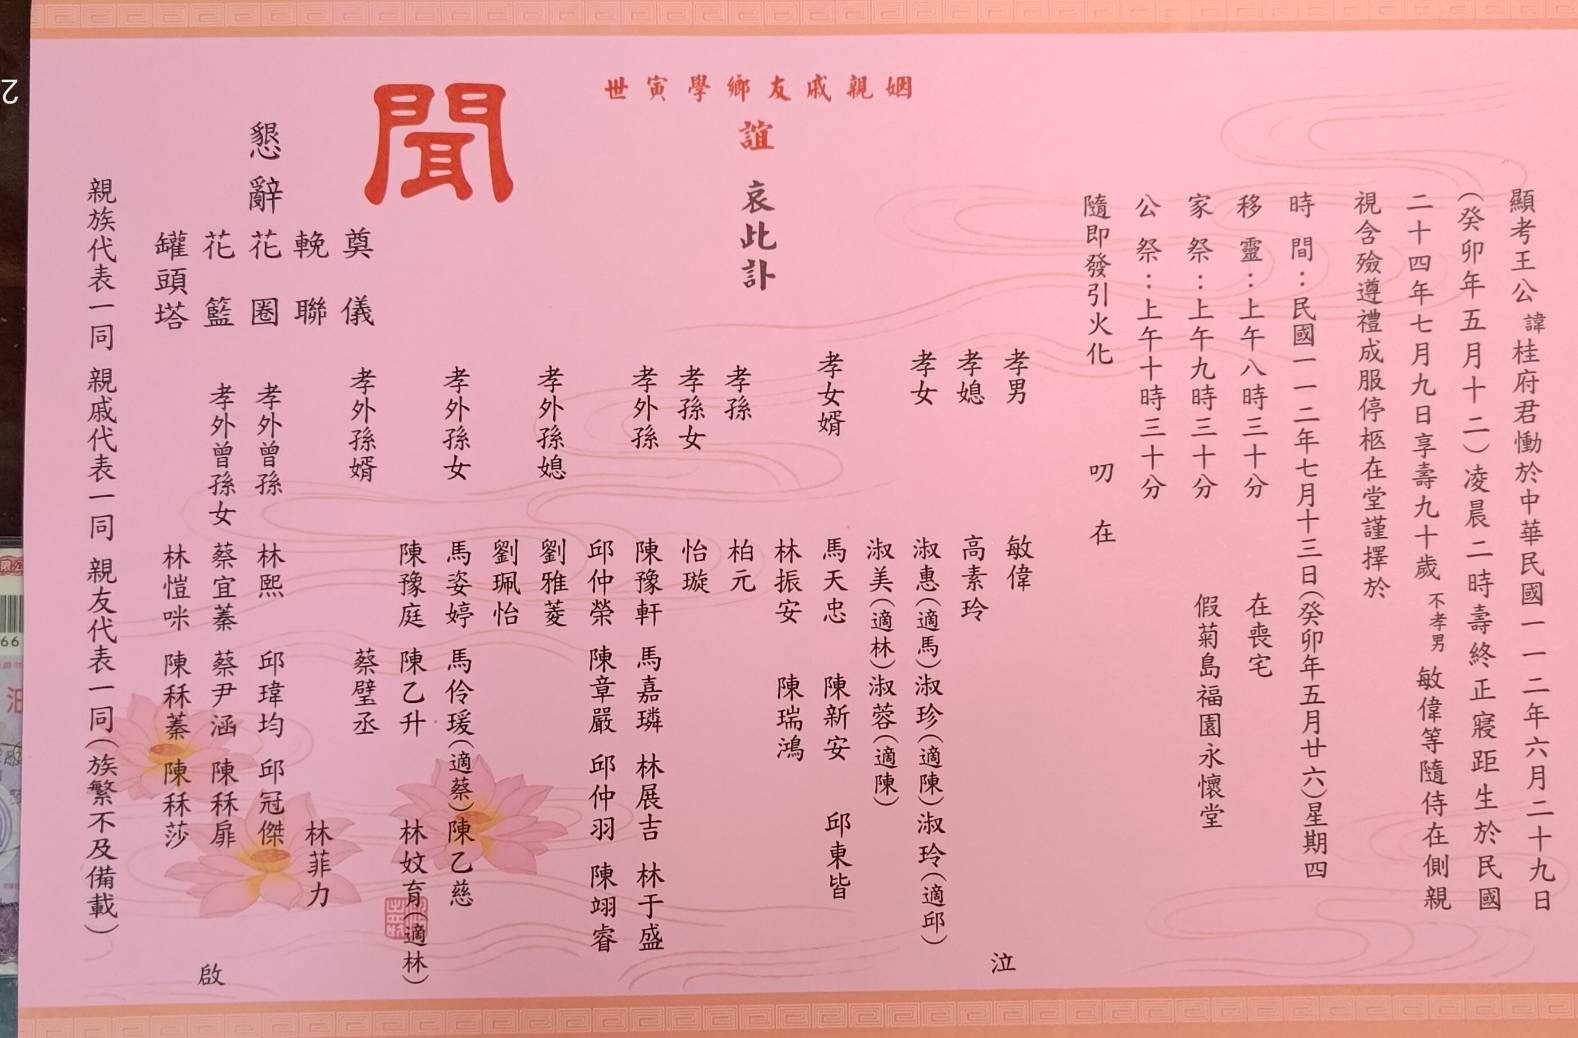 顯考王公諱桂府君慟於中華民國一一二年六月二十九日
(癸卯年五月十二)凌晨二時壽終正寢距生於民國
二十四年七月九日享壽九十歲不孝男敏偉等隨侍在側親
視含殮遵禮成服停柩在堂謹擇於
時間:民國一一二年七月十三日(癸卯年五月廿六)星期四
移靈:上午八時三十分 在喪宅
家祭:上午九時三十分 假菊島福園永懷堂
公祭:上午十時三十分
隨即發引火化 叨在
姻親戚友鄉學寅世
誼 哀此訃
聞
孝男 敏偉 泣
孝媳 高素玲
孝女 淑惠(適馬)淑珍(適陳)淑玲(適邱)
淑美(適林)淑蓉(適陳)
孝女婿 馬天忠 陳新安 邱東皆
林振安 陳瑞鴻
孝孫 柏元
孝孫女 怡璇
孝外孫 陳豫軒 馬嘉璘 林展吉 林于盛
邱仲榮 陳章嚴 邱仲羽 陳翊睿
孝外孫媳 劉雅菱
劉珮怡
孝外孫女 馬姿婷 馬伶瑗(適蔡)陳乙慈
陳豫庭 陳乙升 林妏育(適林)
孝外孫婿 蔡璧丞
林菲力
孝外曾孫 林熙 邱瑋均 邱冠傑
孝外曾孫女 蔡宜蓁 蔡尹涵 陳秝扉
林愷咪 陳秝蓁 陳秝莎
懇辭
奠儀
輓聯
花圈
花籃
罐頭塔
親族代表一同 親戚代表一同 親友代表一同(族繁不及備載)
啟
2
66